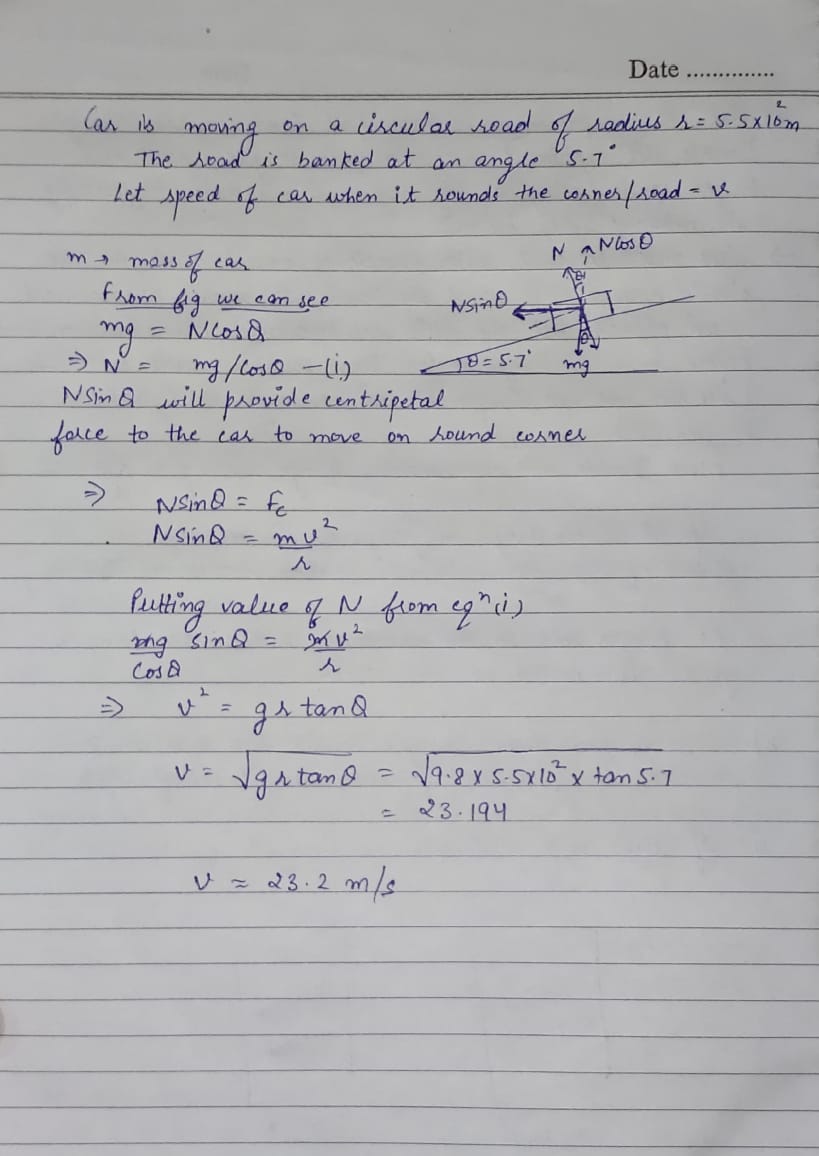 Date ..............
Car is moving on a circular road of radius r = 5.5x10²m
The road is banked at an angle 5.7°
Let speed of car when it rounds the corner/road = v
m → mass of car
from fig we can see
mg = Ncosθ
⇒ N = mg/cosθ -(i)
N NcosθNsinθ
θ
θ
θ = 5.7°
mg
Nsinθ will provide centripetal
force to the car to move on round corner
⇒ Nsinθ = fc
Nsinθ = mv²/r
Putting value of N from eqⁿ(i)
mg/cosθ sinθ = mv²/r
⇒ v² = gr tanθ
v = √gr tanθ = √9.8 x 5.5x10² x tan 5.7
= 23.194
v ≈ 23.2 m/s